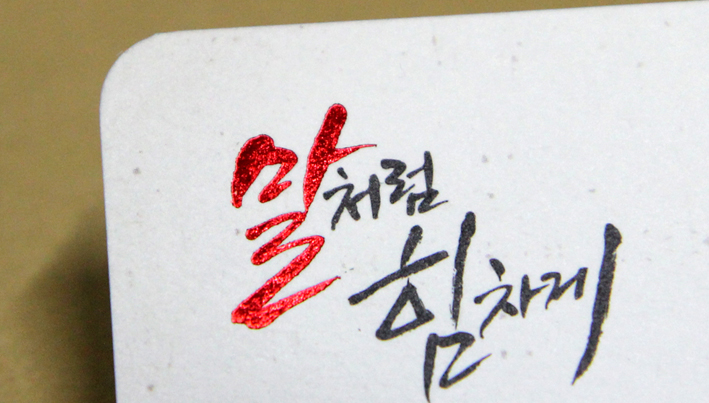 말처럼
힘차게